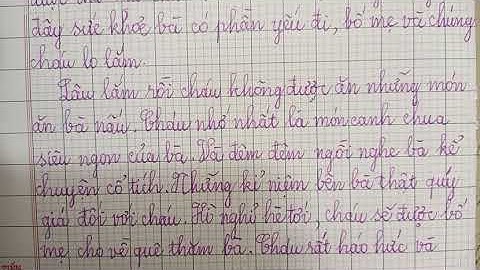 đây sức khoẻ bà có phần yếu đi, bố mẹ và chúng
cháu lo lắm.
Lâu lắm rồi cháu không được ăn những món
ăn bà nấu. Cháu nhớ nhất là món canh chua
siêu ngon của bà. Và đêm đêm ngồi nghe bà kể
chuyện cổ tích. Những kỉ niệm bên bà thật quý
giá đối với cháu. Kì nghỉ hè tới, cháu sẽ được bố
mẹ cho về quê thăm bà. Cháu rất háo hức và